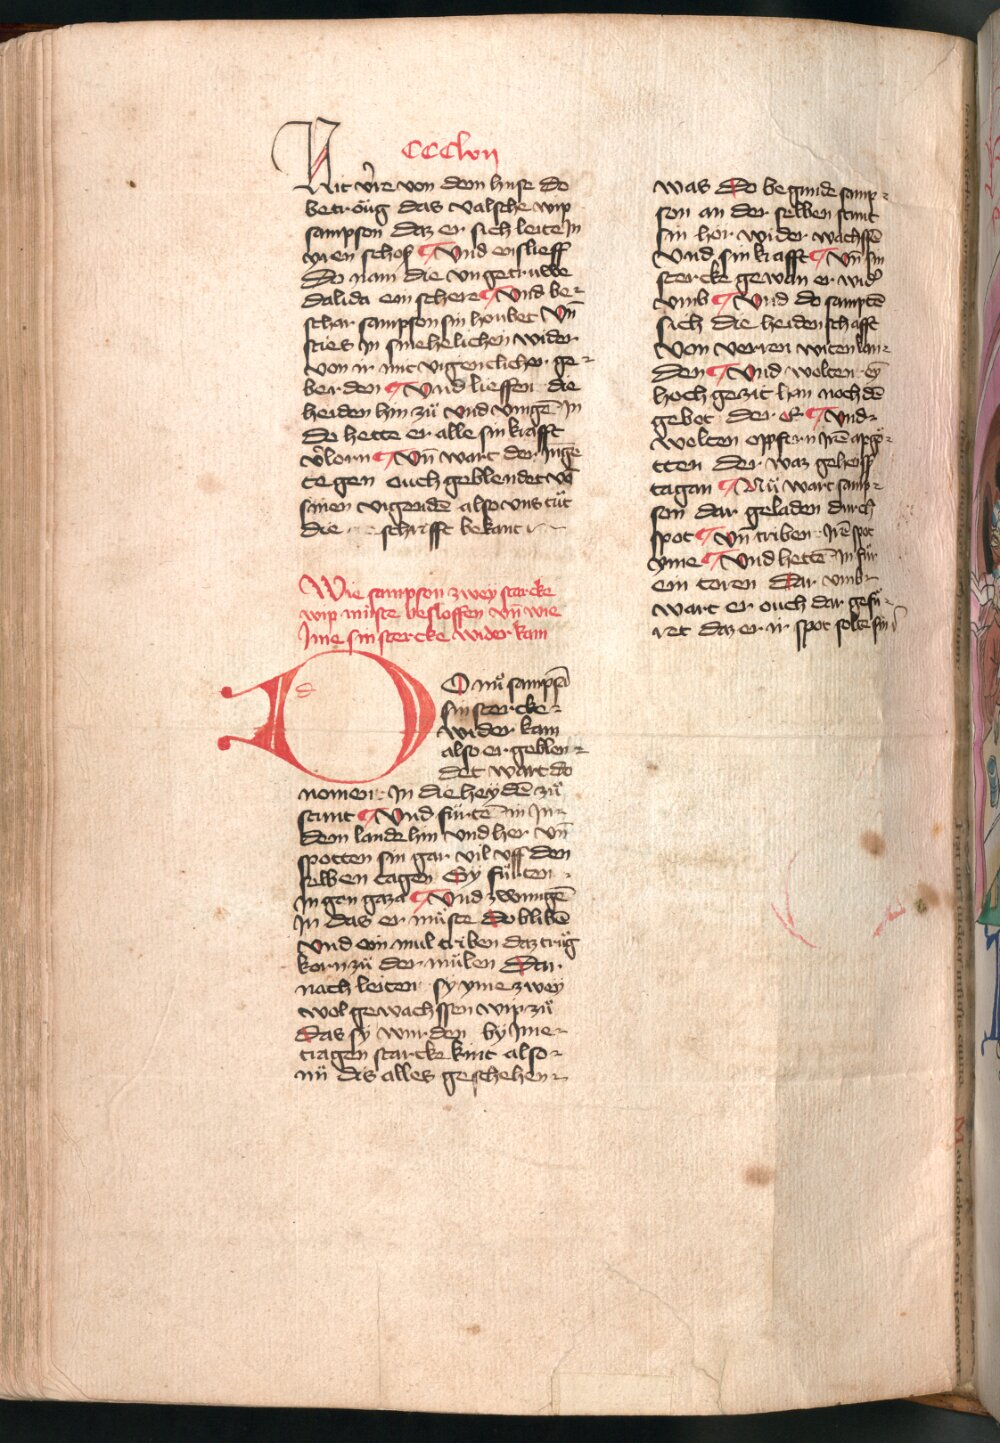 CCCLvii
Nit v̄re von dem huse do
betroͮg das valsche wip
sampson daz er sich leite in
yren schoß ¶ Vnd enslieff
Do nam die vngetruwe
dalida ein schere ¶ Vnd be-
schar sampson sin houbet Vn̄
sties in smehelichen wider
von ir mit vigentlicher ge-
berden ¶ Vnd lieffen die
heiden hin zuͤ vnd viengē in
do hette er alle sin krafft
v̓lorn ¶ Vn̄ wart der
te gen ouch geblendet vō
sinen vigenden also vns tuͤt
die schrifft bekant
Wie sampson zwey starcke
wip muͤste besloffen vn̄ wie
Ime sin stercke wider kam
DO nuͦ sampsō
sin stercke
wider kam
also er geblen-
det wart do
nomen In die heydē zuͤ
stunt ¶ Vnd fuͤrtē in In
dem lande hin vnd her vn̄
spotten sin gar vil vff den
selben tagen Sy fuͤrten
In gen gaza ¶ Vnd zwungē
In das er muͤste do blibē
Vnd ein mul triben daz truͤg
korn zuͤ der muͤlen Dar
nach leiten sy yme zwey
wol gewachssen wip zuͤ
Das sy wurden by Ime
tragen starcke kint also
nuͤ dis alles geschehen
was Do begunde samp-
son an der selben stunt
sin hor wider wachssē
Vnd sin krafft ¶ Vn̄ sin
stercke gewan er wid̓
vmb ¶ Vnd do samptē
sich die heidenschafft
Von verren witen lan-
den ¶ Vnd wolten eȳ
hochgezit han noch dē
gebot der ¶ Vnd
wolten opffern Irē apgoͤ-
tten der waz geheissē
tagan ¶ Nuͤ wart samp-
son dar geladen durch
spot ¶ Vn̄ triben Irē spot
yme ¶ Vnd hettē In fuͤr
ein toren Dar vmb
wart er ouch dar gefuͤ-
ret daz er ir spot solte sin